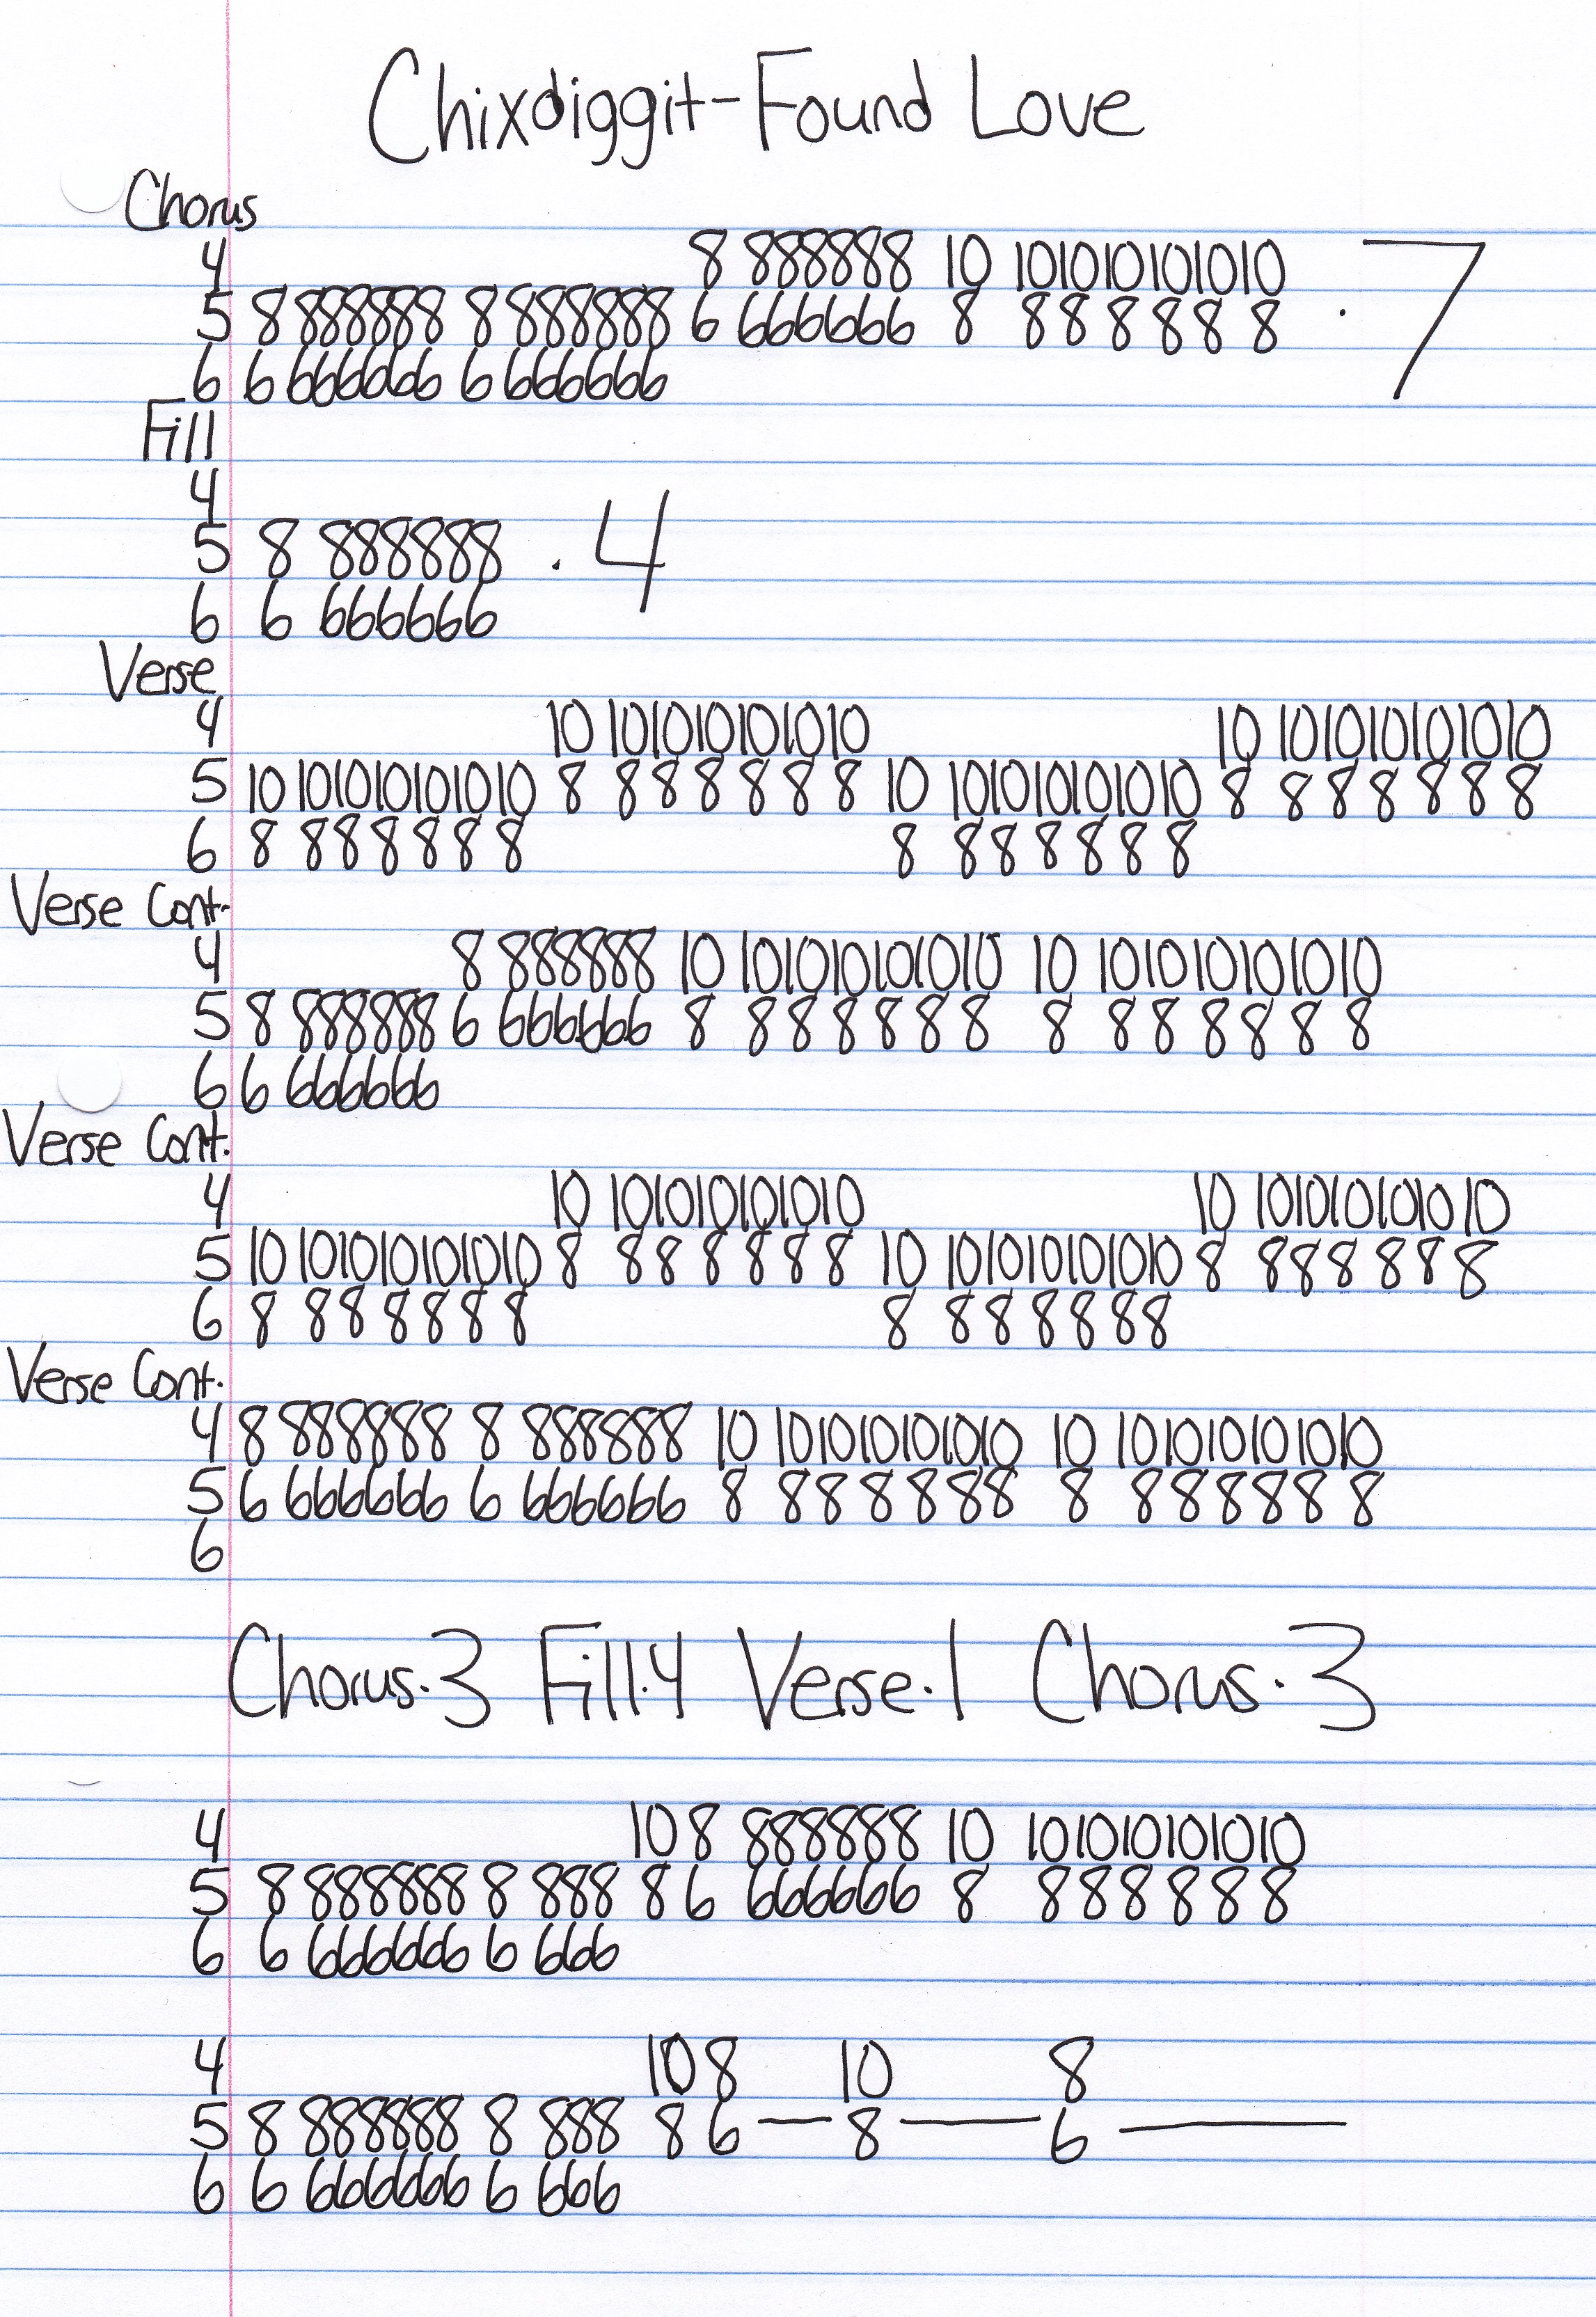 Chixdiggit-Found Love
Chorus
4 8 888888 10 101010101010
5 8 888888 8 888888 6 666666 8 888888 . 7
6 6 666666 6 666666
Fill
4
5 8 888888 . 4
6 6 666666
Verse
4 10 101010101010 10 101010101010
5 10 101010101010 8 888888 10 101010101010 8 888888
6 8 888888 8 888888
Verse Cont.
4 8 888888 10 101010101010 10 101010101010
5 8 888888 6 666666 8 888888 8 888888
6 6 666666
Verse Cont.
4 10 101010101010 10 101010101010
5 10 101010101010 8 888888 10 101010101010 8 888888
6 8 888888 8 888888
Verse Cont.
4 8 888888 8 888888 10 101010101010 10 101010101010
5 6 666666 6 666666 8 888888 8 888888
6
Chorus.3 Fill.4 Verse.1 Chorus.3
4 10 8 888888 10 101010101010
5 8 888888 8 888 8 6 666666 8 888888
6 6 666666 6 666
4 10 8 10 8
5 8 888888 8 888 8 6 — 8 — 6 —
6 6 666666 6 666